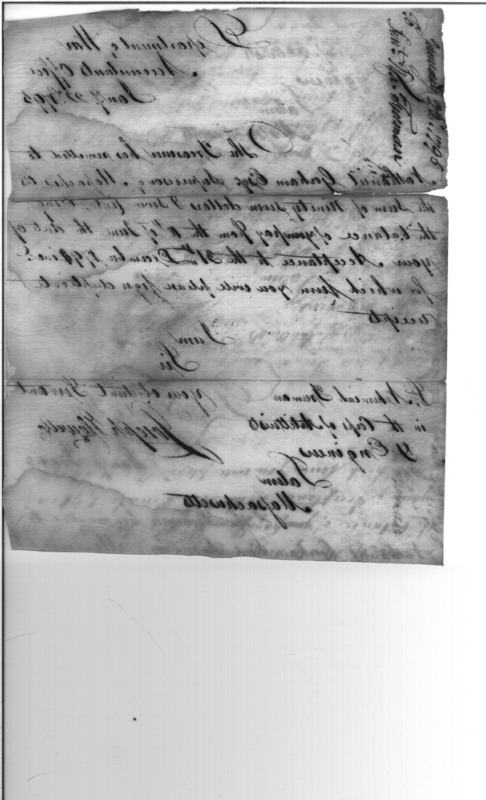 Department of War
Accountants Office
Jany. 22d. 1795
The Treasurer has remitted to
Nathaniel Gorham Esqr. Supervisor of Massachus
the Sum of Ninety Seven dollars & Seventy
the balance of your pay from the of June the date of
your Acceptance to the 31st December 1794 inc
for which sum you will please sign duplicate
receipts
I am
Sir
your obedient Servant
Joseph Howell
Lt. Nehemiah Freeman
in the Corps of Artillerists
& Engineers
Salem
Massachusetts
Freeman